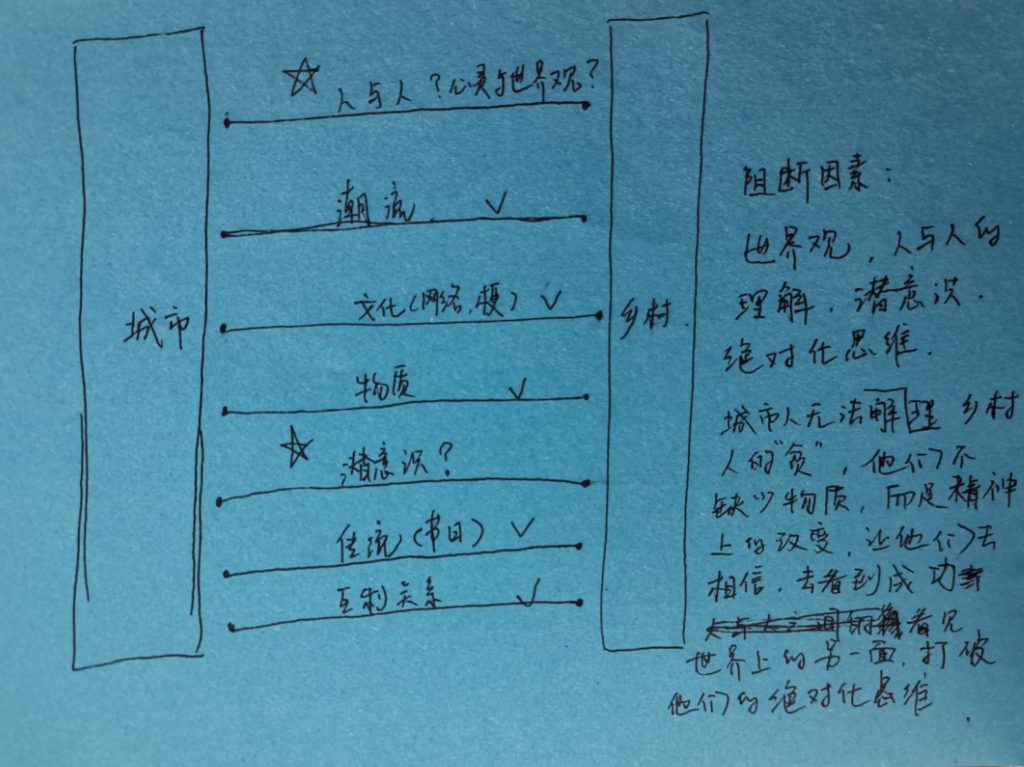 人与人？心灵与世界观？
潮流. ✓
文化(网络,梗) ✓
城市
乡村.
物质 ✓
潜意识？
传流(节日) ✓
互利关系 ✓
阻断因素：
世界观，人与人的
理解，潜意识.
绝对化思维.
城市人无法解理 乡村
人的“贫”，他们不
缺少物质，而是精神
上的改变，让他们去
相信，去看到成功
看见
世界上的另一面，打破
他们的绝对化思维.